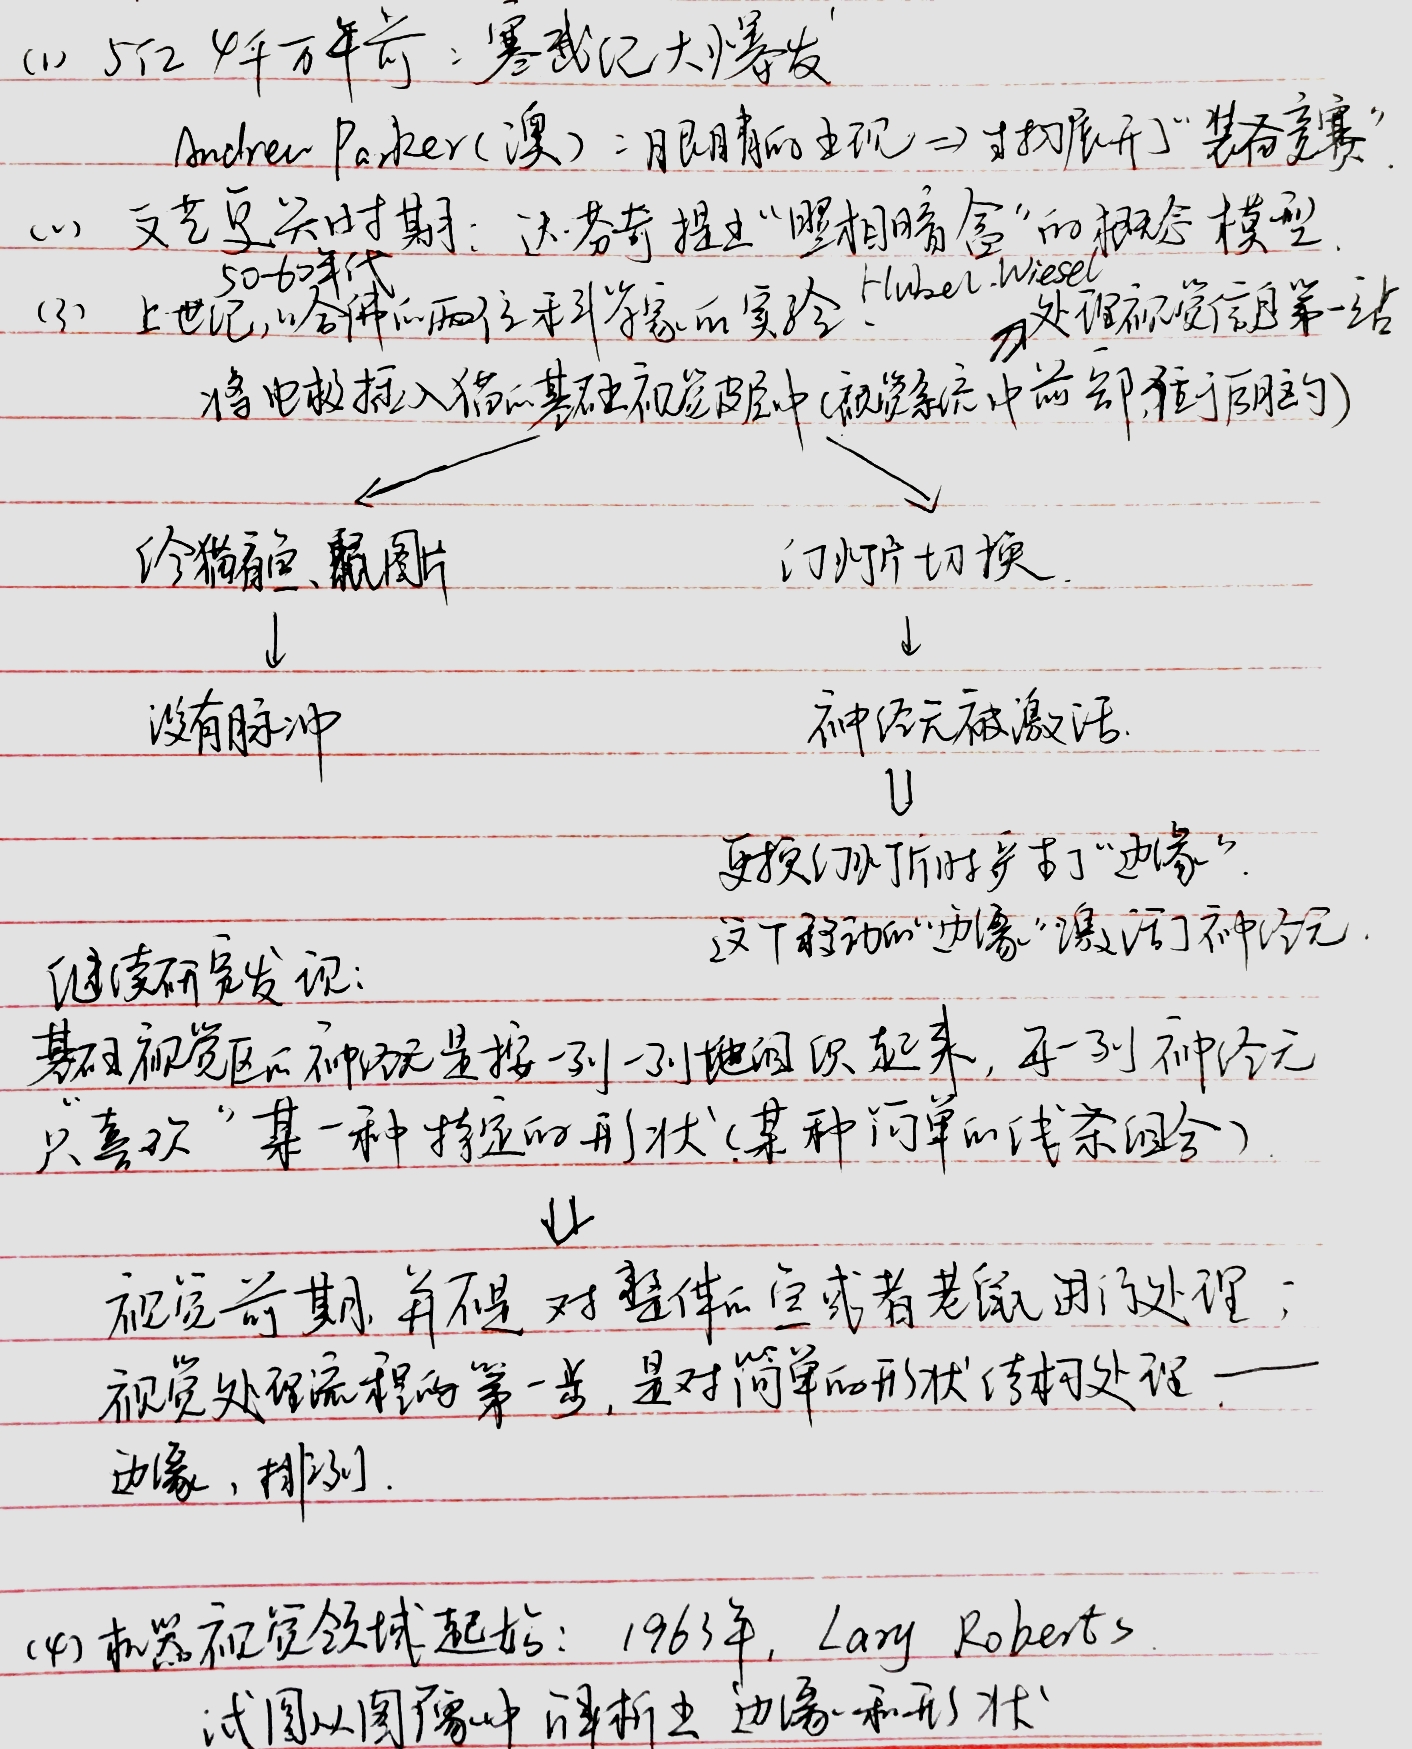 (1) 5亿4千万年前：寒武纪大爆发
Andrew Parker(澳)：眼睛的出现⇒生物展开了“装备竞赛”.
(2) 文艺复兴时期：达·芬奇提出“照相暗盒”的概念模型.
50-60年代
(3) 上世纪,哈佛的两位科学家的实验. Hubel.Wiesel
处理视觉信息第一站
将电极插入猫的基础视觉皮层中(视觉系统中前部,位于后脑的)
给猫看鱼、鼠图片
幻灯片切换.
没有脉冲
神经元被激活.
更换幻灯片时产生了“边缘”.
这个移动的“边缘”激活了神经元.
继续研究发现：
基础视觉区的神经元是按一列一列地组织起来,每一列神经元
只“喜欢”某一种特定的形状(某种简单的线条组合).
视觉前期,并不是对整体的鱼或者老鼠进行处理;
视觉处理流程的第一步,是对简单的形状结构处理——
边缘,排列.
(4) 机器视觉领域起始：1963年, Lary Roberts.
试图从图像中解析出边缘和形状